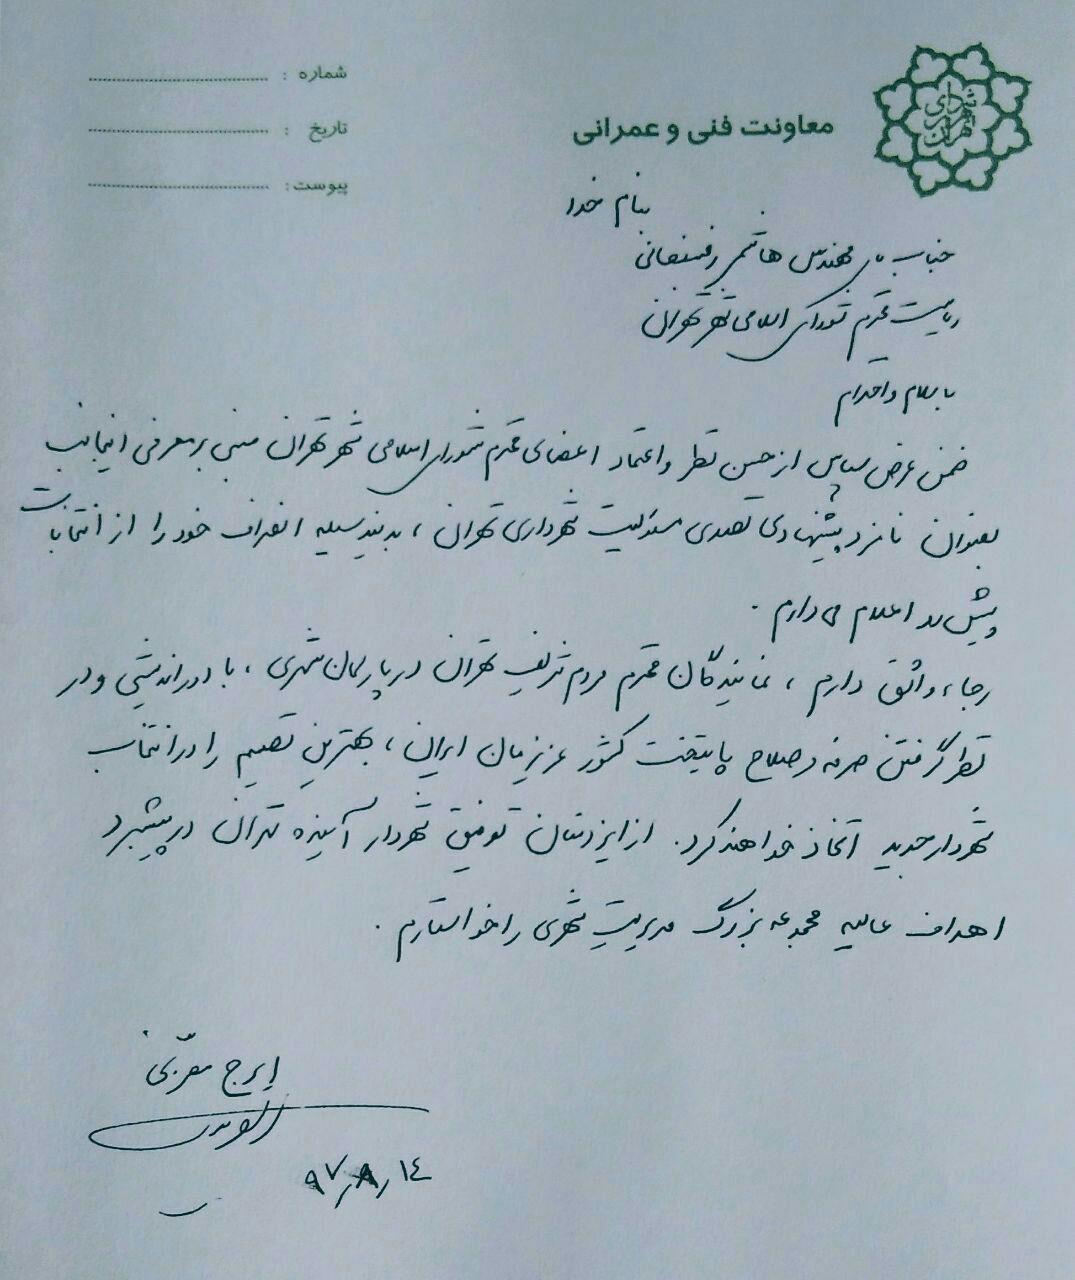 شهرداری تهران
معاونت فنی و عمرانی
شماره :
تاریخ :
پیوست :
بنام خدا
جناب آقای مهندس هاشمی رفسنجانی
ریاست محترم شورای اسلامی شهر تهران
با سلام و احترام
ضمن عرض سپاس از حسن نظر و اعتماد اعضای محترم شورای اسلامی شهر تهران مبنی بر معرفی اینجانب
بعنوان نامزد پیشنهادی تصدی مسئولیت شهرداری تهران ، بدینوسیله انصراف خود را از انتخابات
پیش رو اعلام می دارم .
رجاء واثق دارم ، نمایندگان محترم مردم شریف تهران در پارلمان شهری ، با دوراندیشی و در
نظر گرفتن صرفه و صلاح پایتخت کشور عزیزمان ایران ، بهترین تصمیم را در انتخاب
شهردار جدید اتخاذ خواهند کرد. از ایزد منان توفیق شهردار آینده تهران در پیشبرد
اهداف عالیه مجموعه بزرگ مدیریت شهری را خواستارم .
ایرج معزی
۹۷/۸/۱٤